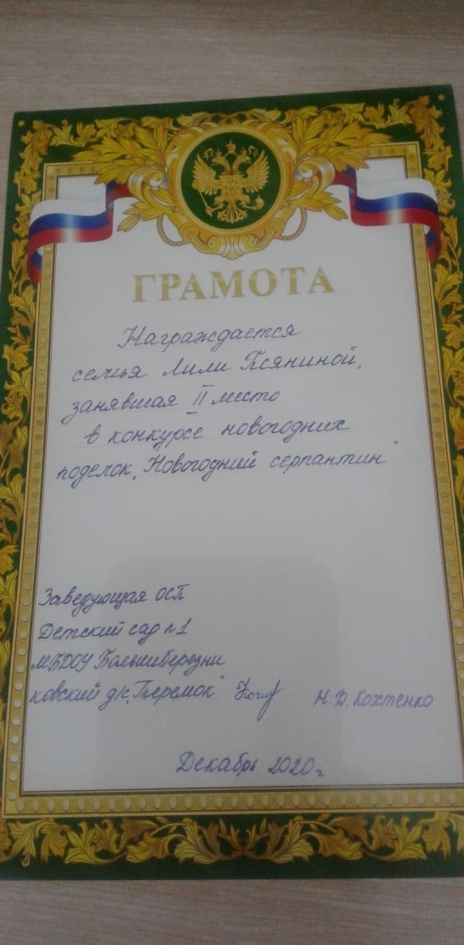 ГРАМОТА
Награждается
семья Лили Псяниной,
занявшая II место
в конкурсе новогодних
поделок „Новогодний серпантин"
Заведующая ОСП
Детский сад №1
МБДОУ Большеберезни
ковский д/с „Теремок" Н.Д. Кохтенко
Декабрь 2020г